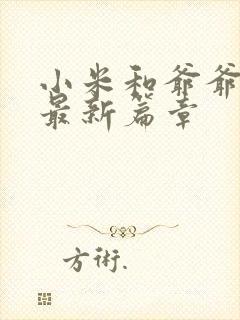 小米和爷爷
最新篇章
方術.